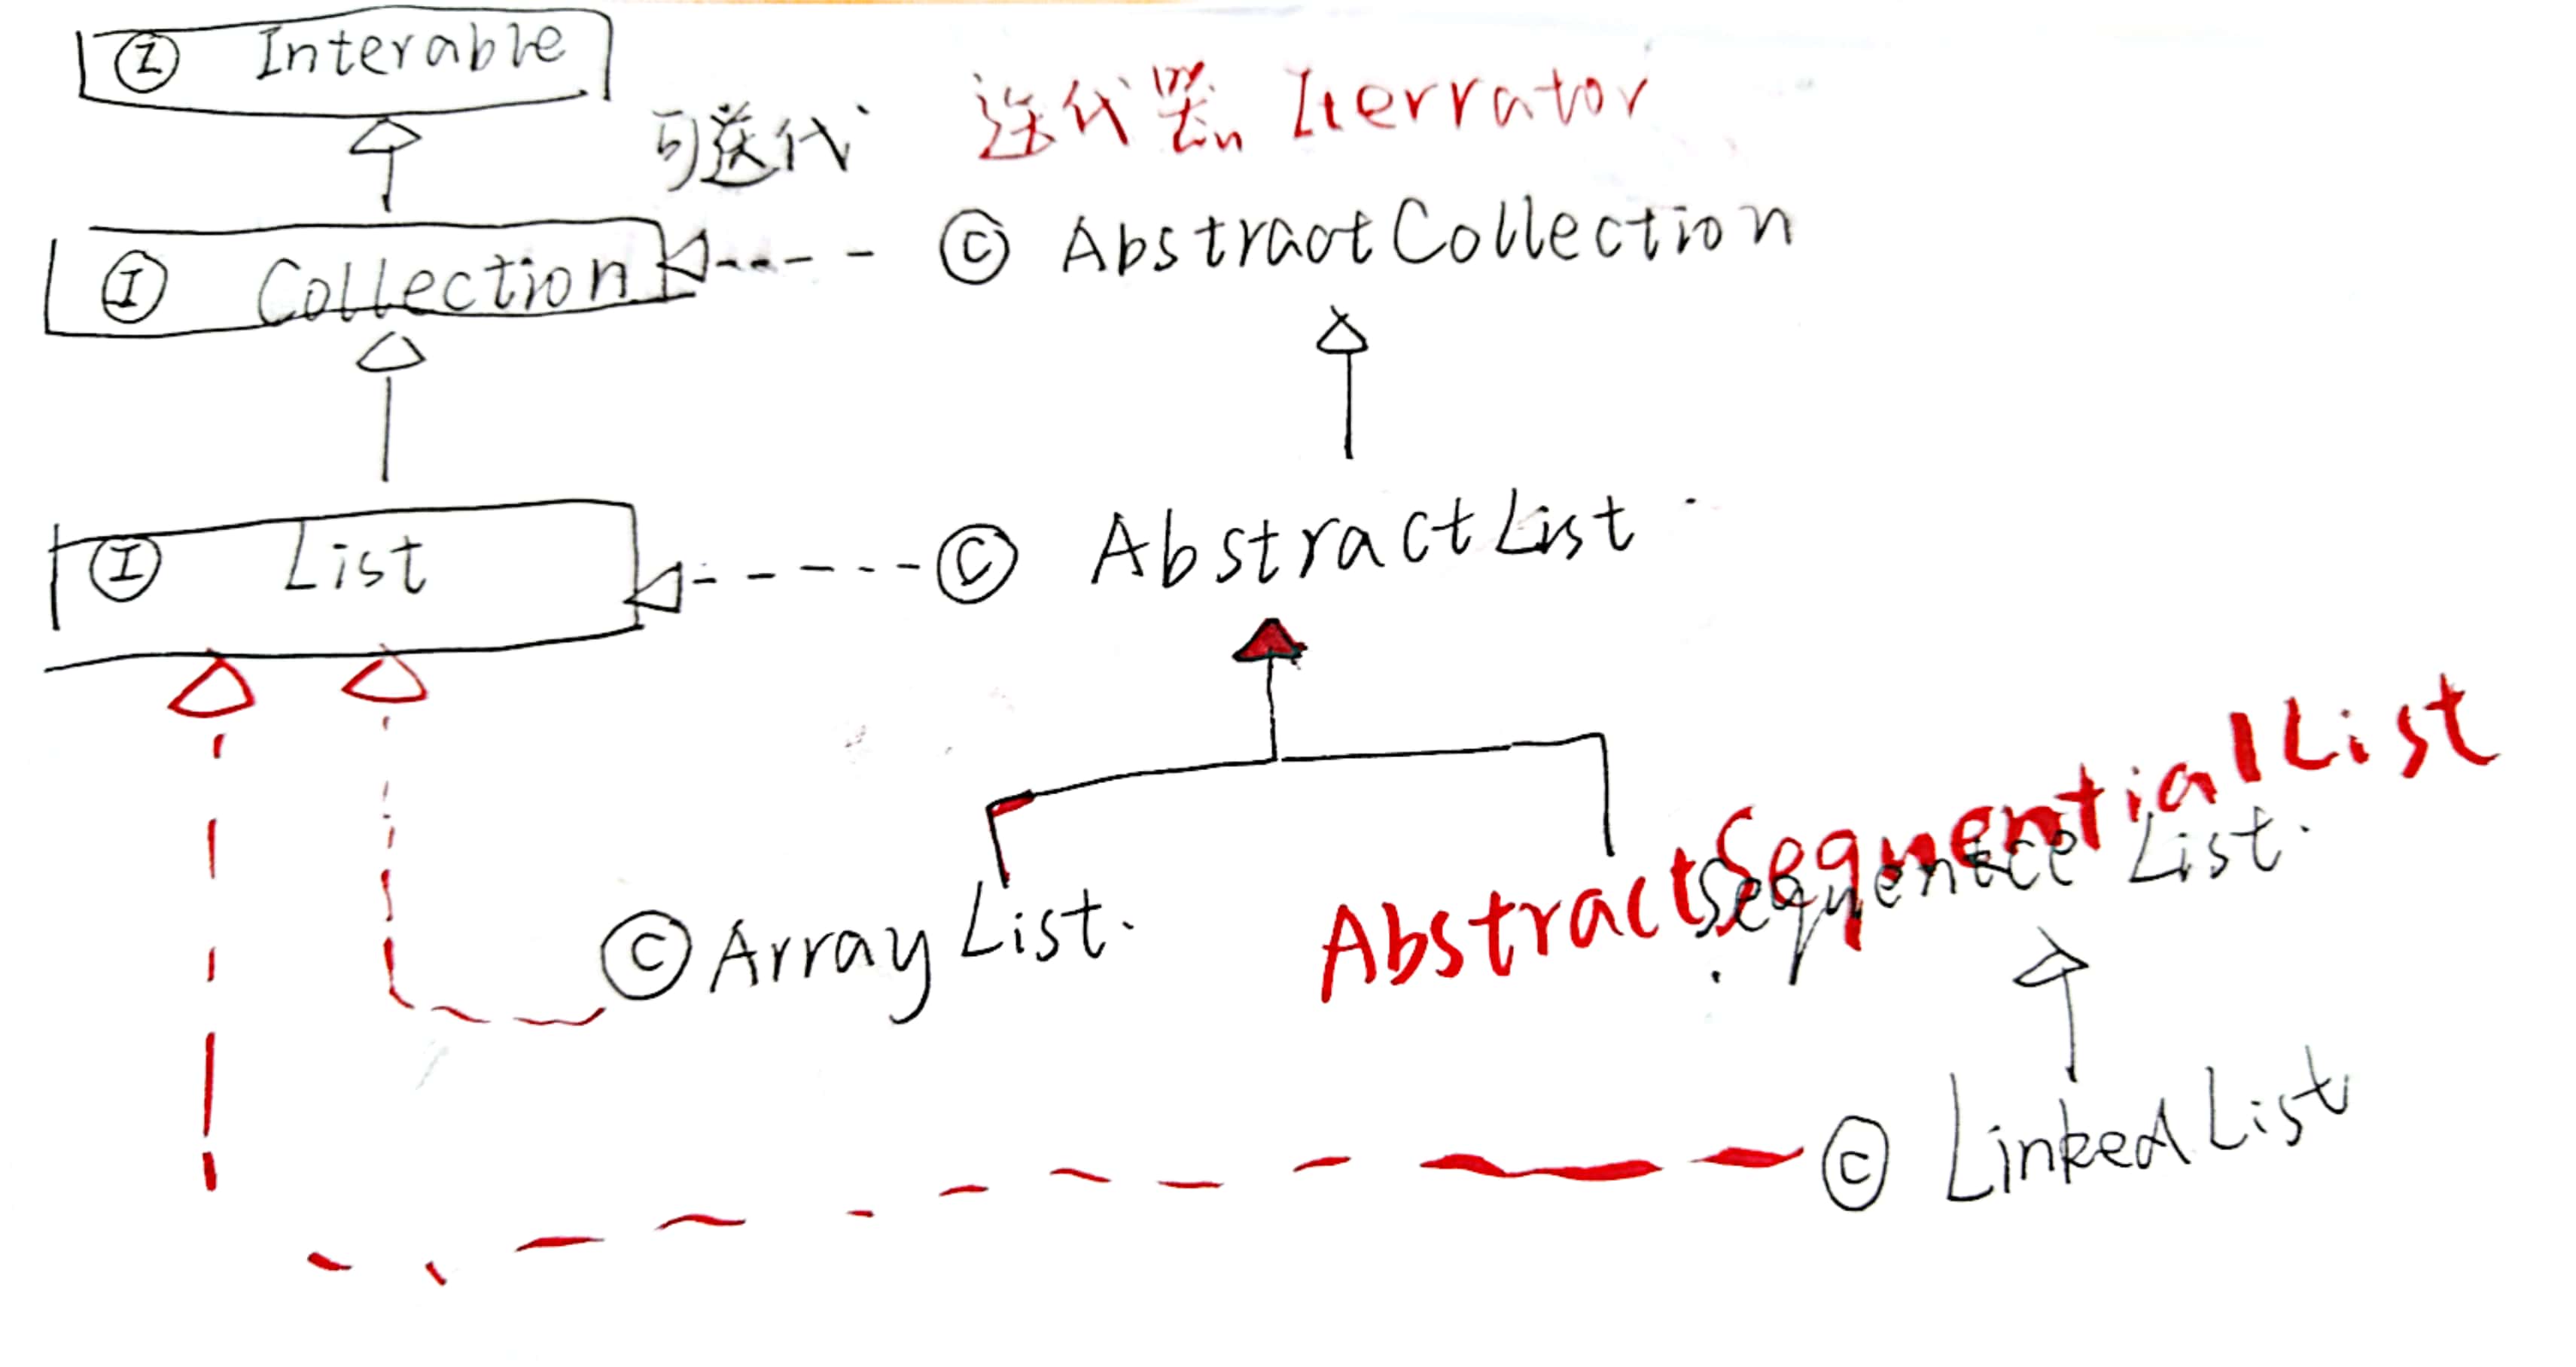 Ⓘ Interable
可迭代
迭代器 Iterrator
Ⓘ Collection
Ⓒ AbstractCollection
Ⓘ List
Ⓒ AbstractList
Ⓒ ArrayList.
AbstractSequentialList
Sequence List.
Ⓒ LinkedList